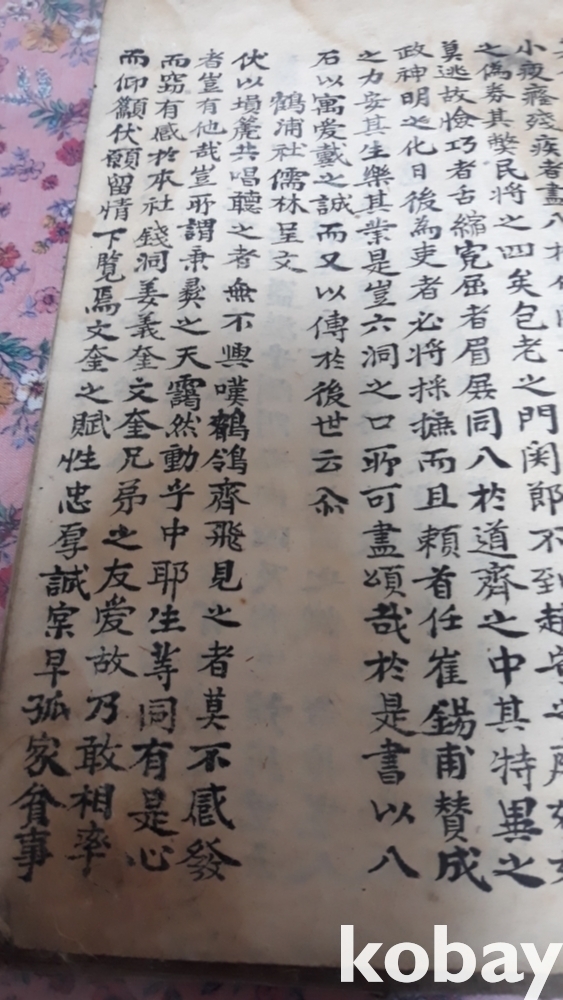 小瘦癃殘疾者盡八於
之偽券其獘民將之四矣包老之門関郎不到趙
莫逃故憸巧者舌縮寃屈者眉展同八於道齊之中其特異之
政神明之化日後為吏者必將採摭而且頼首任崔錫甫賛成
之力安其生樂其業是豈六洞之口所可盡頌哉於是書以八
石以寓愛戴之誠而又以傳於後世云尒
鶴浦社儒林呈文
伏以塤篪共唱聽之者無不興嘆鶺鴒齊飛見之者莫不感發
者豈有他哉豈所謂秉彛之天靄然動乎中耶生等同有是心
而窃有感於本社錢洞姜義奎文奎兄弟之友愛故乃敢相率
而仰籲伏願留情下覽焉文奎之賦性忠厚誠宲早孤家貧事
kobay